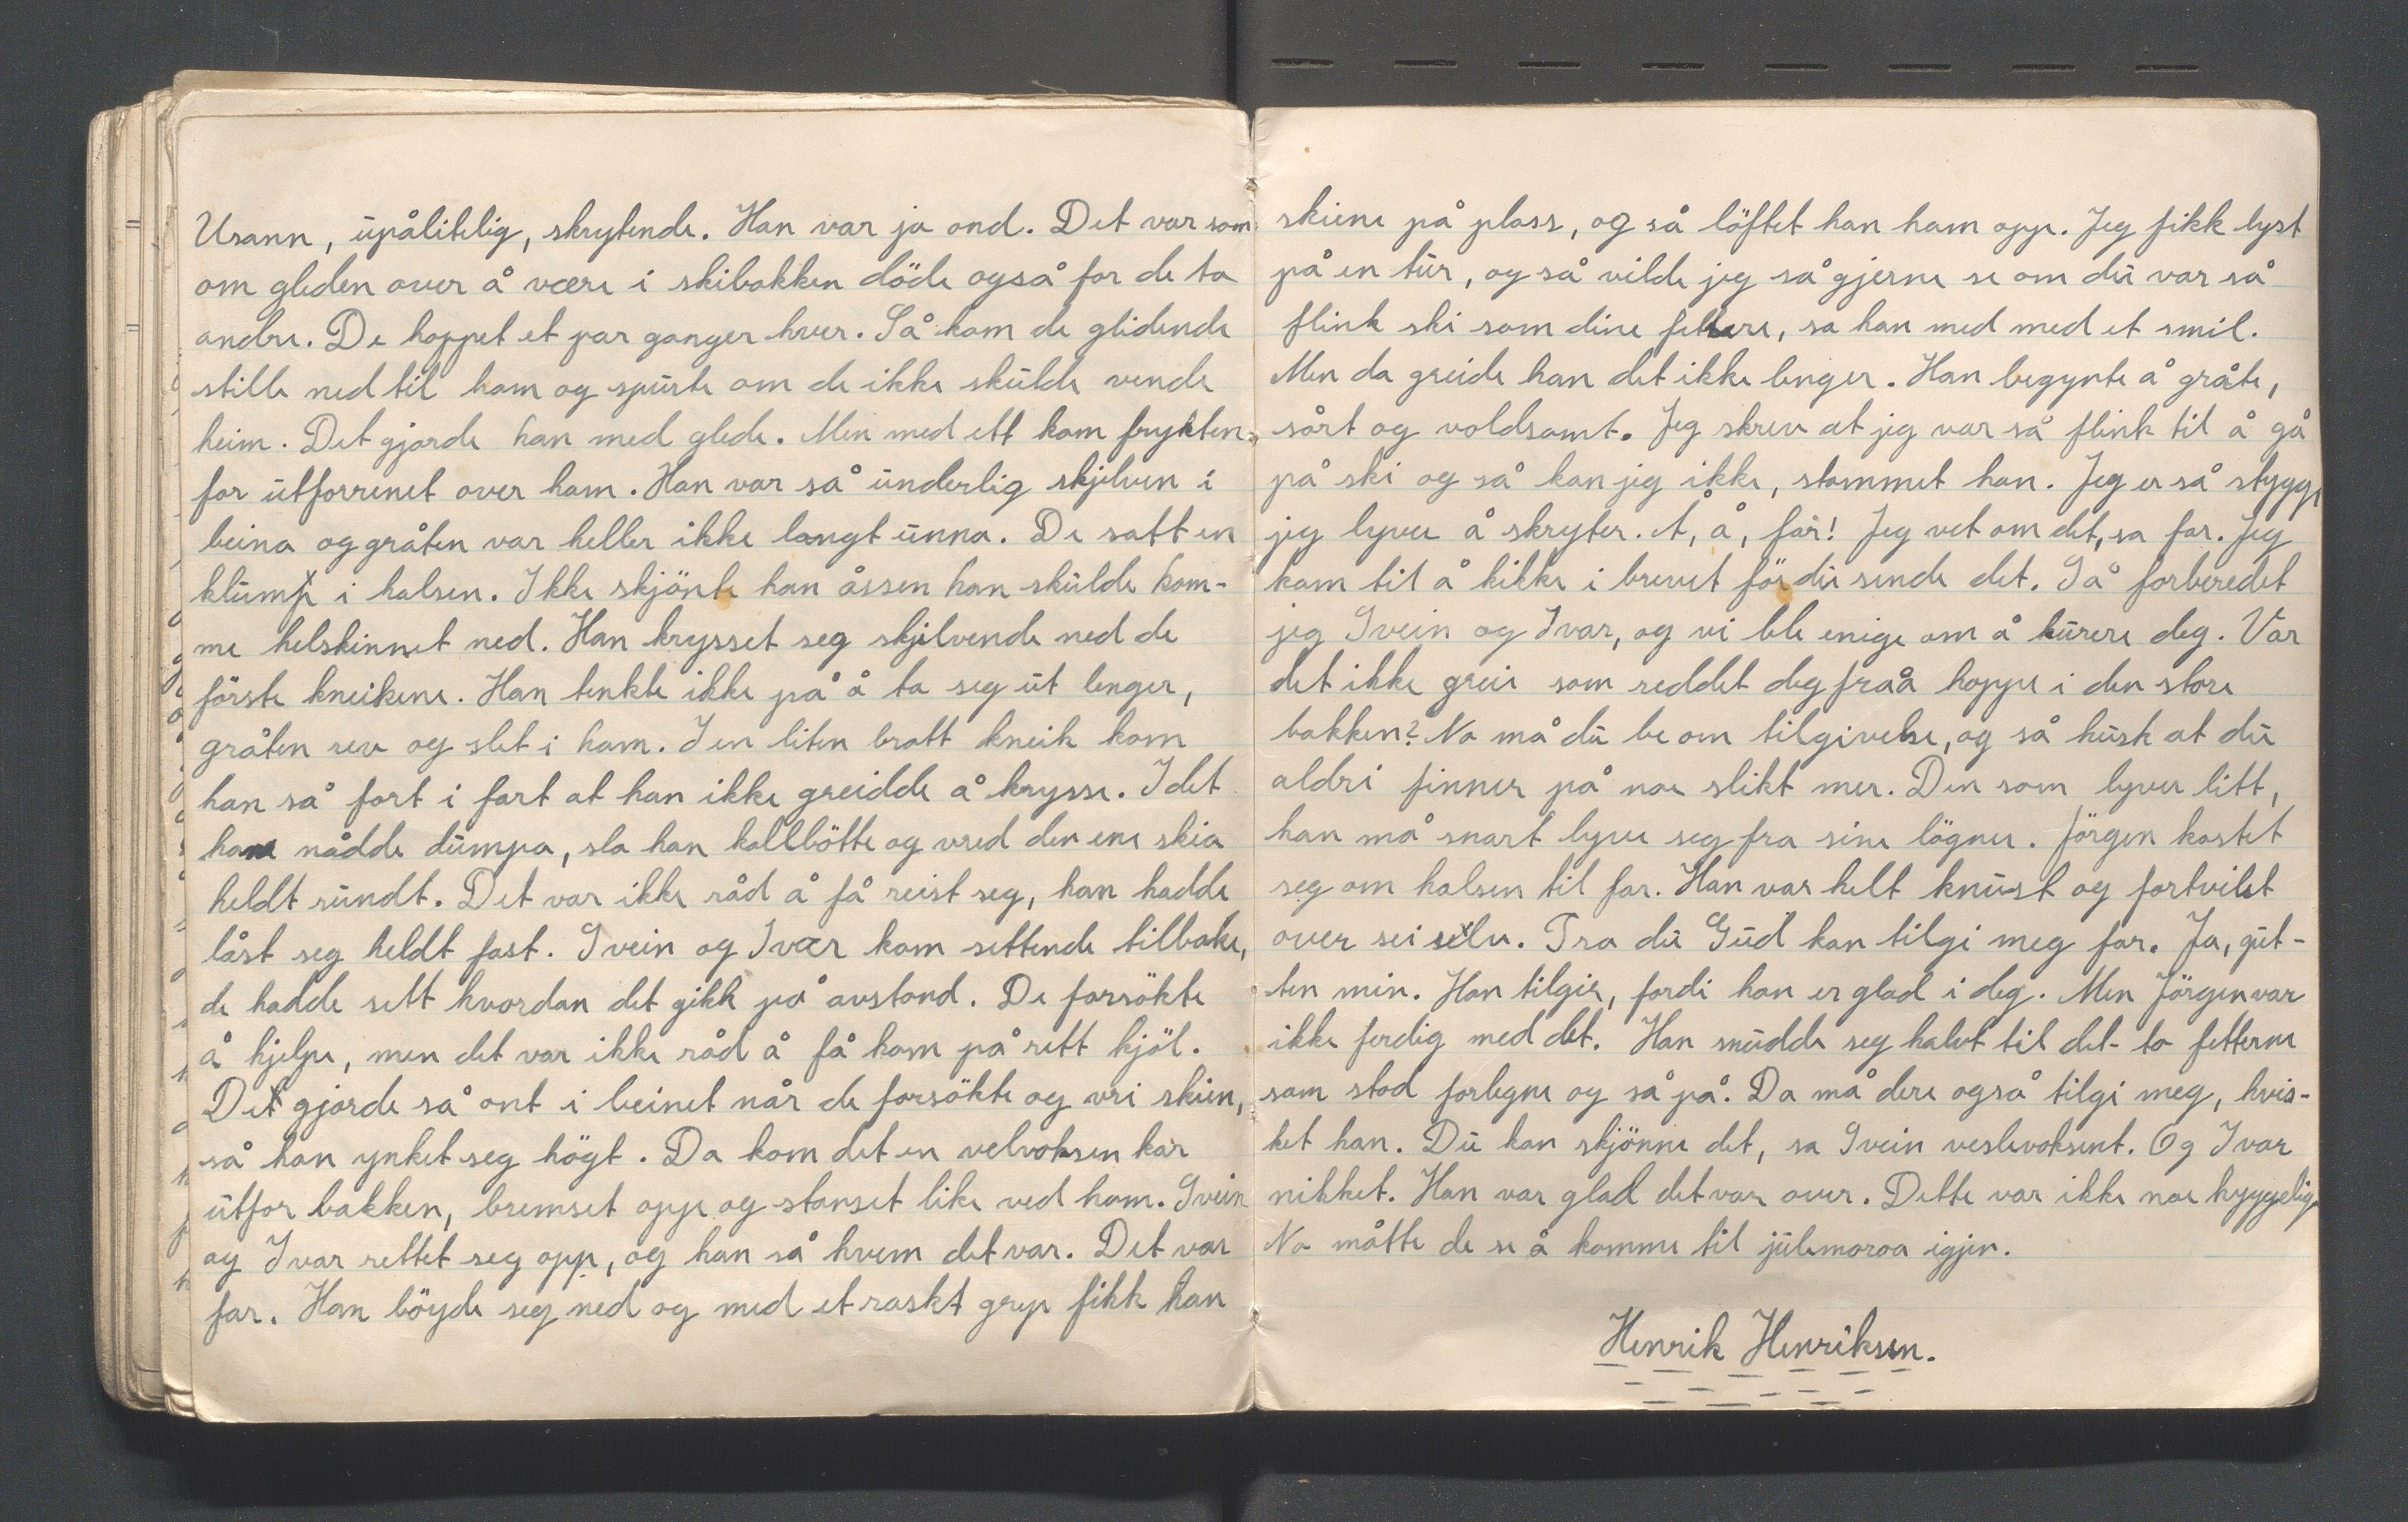 Usann, upålitelig, skrytende. Han var ja ond. Det var som
om gleden over å være i skibakken döde også for de to
andre. De hoppet et par ganger hver. Så kom de glidende
stille ned til ham og spurte om de ikke skulde vende
heim. Det gjorde han med glede. Men med ett kom frykten
for utforrenet over ham. Han var så underlig skjelven i
beina og gråten var heller ikke langt unna. De satt en
klump i halsen. Ikke skjönte han åssen han skulde kom-
me helskinnet ned. Han krysset seg skjelvende ned de
förste kneikene. Han tenkte ikke på å ta seg ut lenger,
gråten rev og slet i ham. I en liten bratt kneik kom
han så fort i fart at han ikke greidde å krysse. I det
han nådde dumpa, slo han kollbötte og vred den ene skia
heldt rundt. Det var ikke råd å få reist seg, han hadde
låst seg heldt fast. Svein og Ivar kom settende tilbake,
de hadde sett hvordan det gikk på avstand. De forsökte
å hjelpe, men det var ikke råd å få ham på rett kjöl.
Det gjorde så ont i beinet når de forsökte og vri skien,
så han ynket seg högt. Da kom det en velvoksen kar
utfor bakken, bremset opp og stanset like ved ham. Svein
og Ivar rettet seg opp, og han så hvem det var. Det var
far. Han böyde seg ned og med et raskt grep fikk han
skiene på plass, og så löftet han ham opp. Jeg fikk lyst
på en tur, og så vilde jeg så gjerne se om du var så
flink ski som dine fettere, sa han med med et smil.
Men da greide han det ikke lenger. Han begynte å gråte,
sårt og voldsomt. Jeg skrev at jeg var så flink til å gå
på ski og så kan jeg ikke, stammet han. Jeg er så stygg,
jeg lyver å skryter. Å, å, far! Jeg vet om det, sa far. Jeg
kom til å kikke i brevet för du sende det. Så forberedet
jeg Svein og Ivar, og vi ble enige om å kurere deg. Var
det ikke greie som reddet deg fra å hoppe i den store
bakken? No må du be om tilgivelse, og så husk at du
aldri finner på noe slikt mer. Den som lyver litt,
han må snart lyve seg fra sine lögner. Jörgen kastet
seg om halsen til far. Han var helt knust og fortvilet
over sei selv. Tro du Gud kan tilgi meg far. Ja, gut-
ten min. Han tilgir, fordi han er glad i deg. Men Jörgen var
ikke ferdig med det. Han snudde seg halvt til det to fetterne
som stod forlegne og så på. Da må dere også tilgi meg, hvis-
ket han. Du kan skjönne det, sa Svein veslevoksent. Og Ivar
nikket. Han var glad det var over. Dette var ikke noe hyggelig
No måtte de se å komme til julemoroa igjen.
Henrik Henriksen.